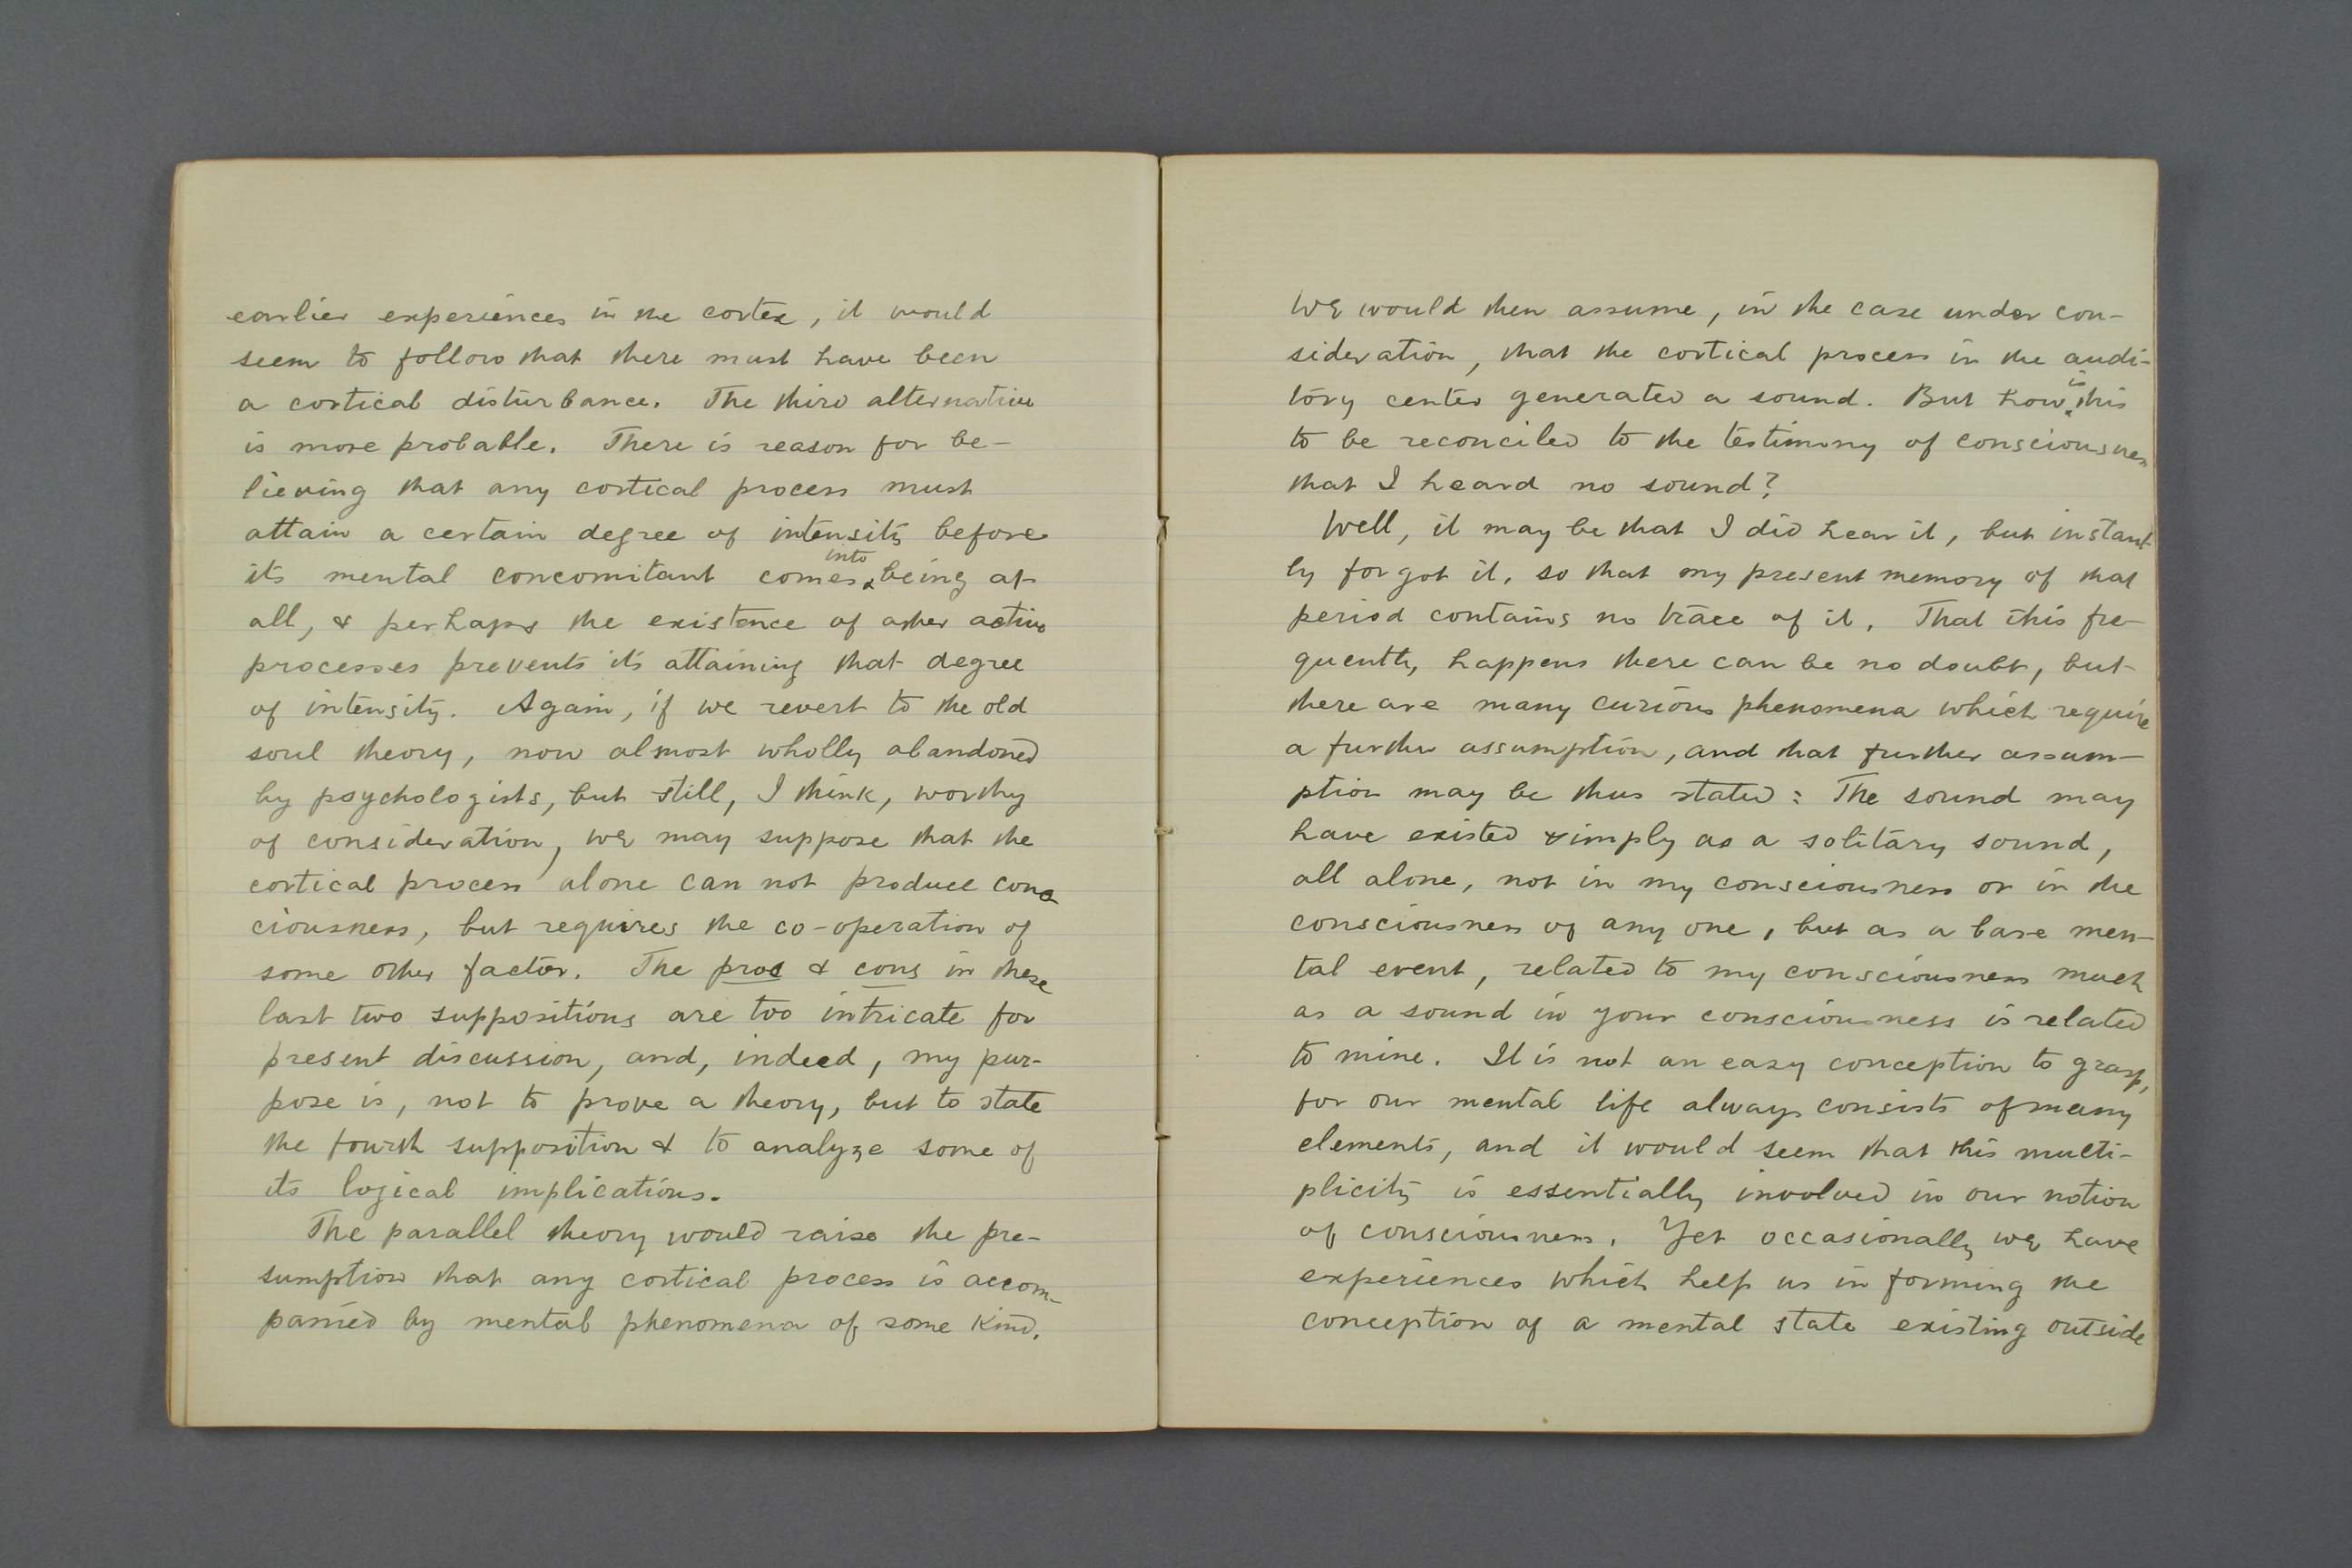 earlier experiences in the cortex, it would
seem to follow that there must have been
a cortical disturbance. The third alternative
is more probable. There is reason for be-
lieving that any cortical process must
attain a certain degree of intensity before
its mental concomitant comes into being at
all, & perhaps the existence of other active
processes prevents its attaining that degree
of intensity. Again, if we revert to the old
soul theory, now almost wholly abandoned
by psychologists, but still, I think, worthy
of consideration, we may suppose that the
cortical process alone can not produce cons-
ciousness, but requires the co-operation of
some other factor. The pros & cons in these
last two suppositions are too intricate for
present discussion, and, indeed, my pur-
pose is, not to prove a theory, but to state
the fourth supposition & to analyze some of
its logical implications.
The parallel theory would raise the pre-
sumption that any cortical process is accom-
panied by mental phenomena of some kind.
We would then assume, in the case under con-
sideration, that the cortical process in the audi-
tory center generated a sound. But how is this
to be reconciled to the testimony of consciousness
that I heard no sound?
Well, it may be that I did hear it, but instant-
ly forgot it, so that my present memory of that
period contains no trace of it. That this fre-
quently happens there can be no doubt, but
there are many curious phenomena which require
a further assumption, and that further assum-
ption may be thus stated: The sound may
have existed simply as a solitary sound,
all alone, not in my consciousness or in the
consciousness of any one, but as a bare men-
tal event, related to my consciousness much
as a sound in your consciousness is related
to mine. It is not an easy conception to grasp,
for our mental life always consists of many
elements, and it would seem that this multi-
plicity is essentially involved in our notion
of consciousness. Yet occasionally we have
experiences which help us in forming the
conception of a mental state existing outside